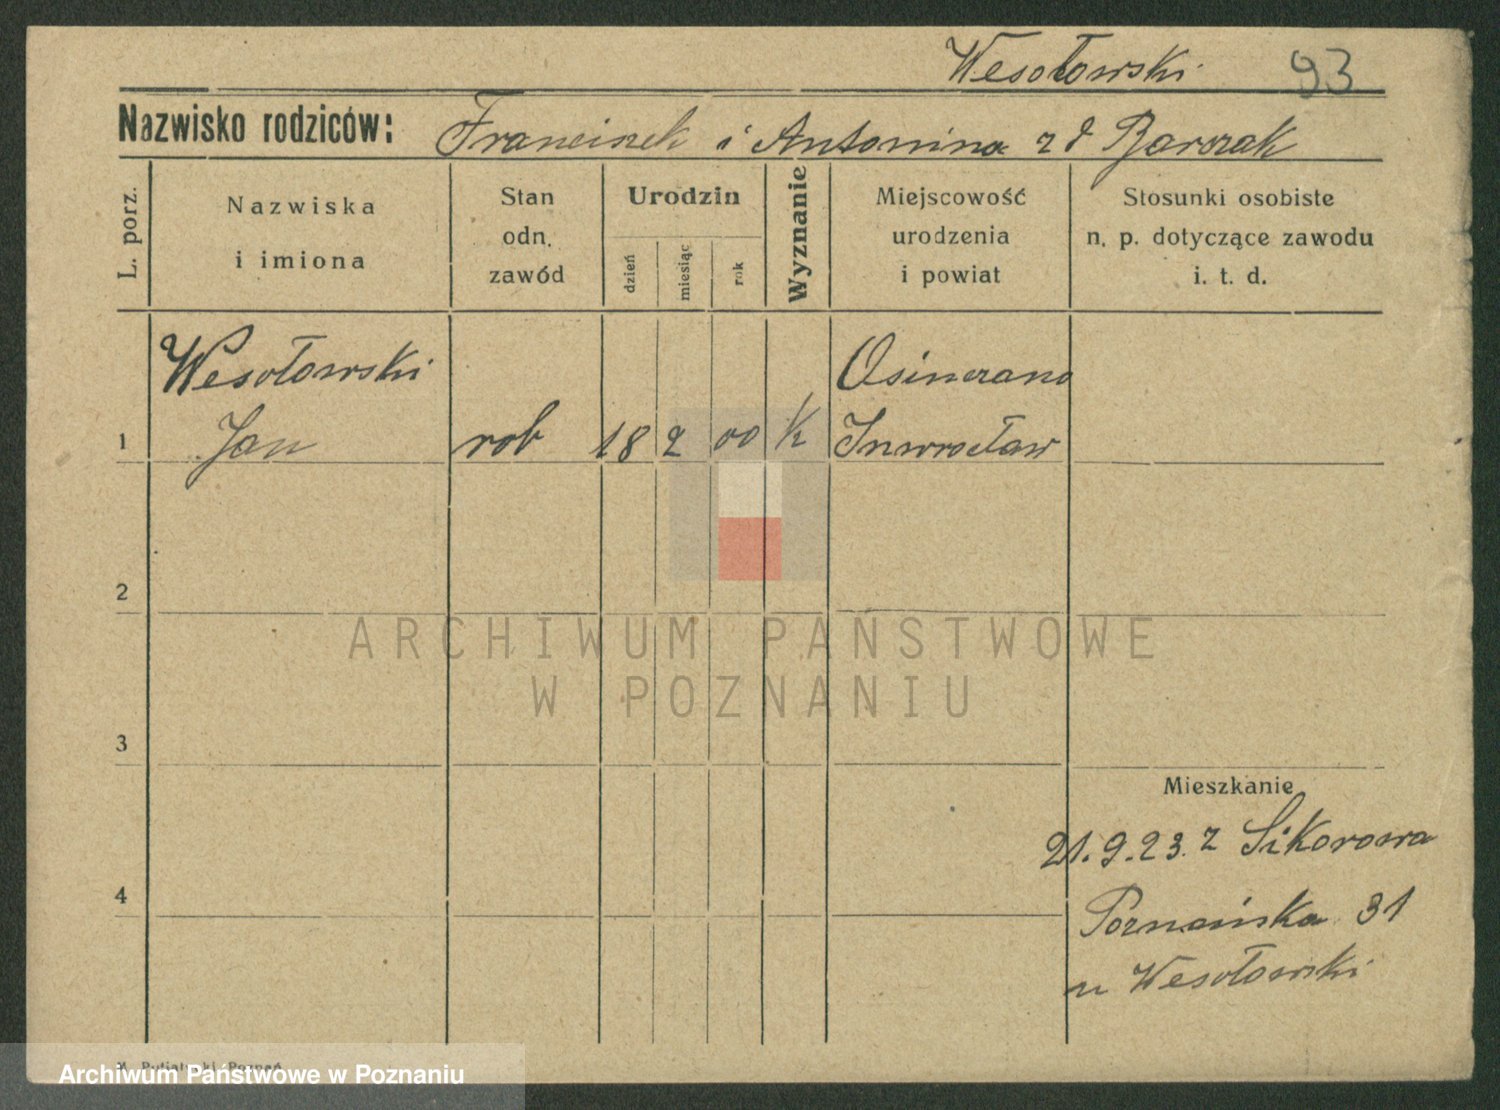 Wesołowski 93
Nazwisko rodziców: Franciszek i Antonina z d Barczak
L. porz.
Nazwiska
i imiona
Stan
odn.
zawód
Urodzin
dzień
miesiąc
rok
Wyznanie
Miejscowość
urodzenia
i powiat
Stosunki osobiste
n. p. dotyczące zawodu
i. t. d.
Wesołowski
1 Jan rob 18 2 00 K Inwrocław
2
ARCHIWUM PAŃSTWOWE
W POZNANIU
3
Mieszkanie
21.9.23. z Sikorowa
4
Poznańska 31
u Wesołowski
Poznań
Archiwum Państwowe w Poznaniu